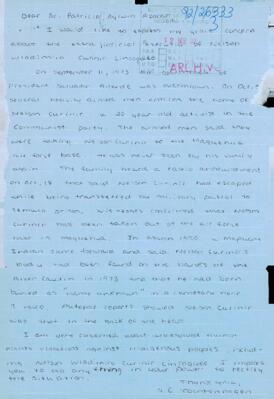 Dear Sr. Patricio Aylwin Azocar
92/26333
3
I would like to express my grave concern
about the extra judicial of Nelson
Wladimiro Curinir Lincoqueo
ARCHIVO
On September 11, 1973
president Salvador Allende was overthrown. On Oct 5
several heavily armed men entered the home of
Nelson Curinir a 20 year old activist in the
Communist party. The armed men said they
were taking Nelson Curinir to the Maquehua
air force base. He was never seen by his family
again. The family heard a radio announcement
on Oct, 18 that said Nelson Curinir had escaped
while being transferred by military patrol to
Temuco prison. Witnesses confirmed that Nelson
Curinir had been taken out of the air force
base in Maquehua. In 1990 a Mapuche
Indian came forward and said Nelson Curinir's
body had been found on the banks of the
River Cautin in 1973 and that he had been
buried as "name unknown" in a cemetery near
Autopsy reports showed Nelson Curinir
was shot in the back of the head.
I am very concerned about widespread human
rights violations against indigenous peoples, including
Nelson Wladimiro Curinir Lincoqueo. I implore
you to do anything in your power to rectify
the situation.
Thank you,